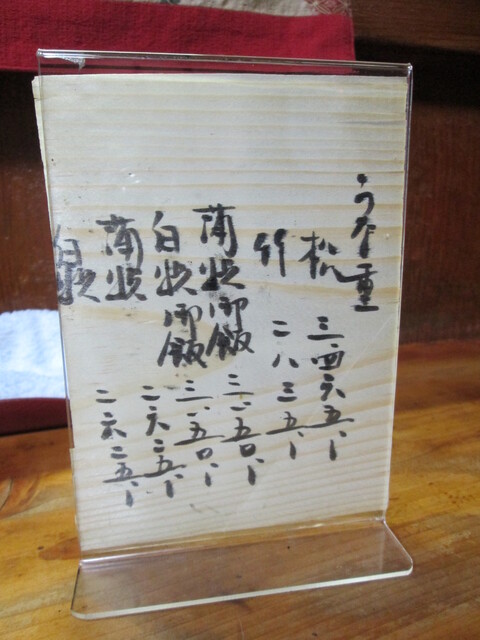 うな重
松 三四六五
竹 二八三五
蒲焼御飯 三一五〇
白焼御飯 三一五〇
蒲焼 二六二五
白焼 二六二五